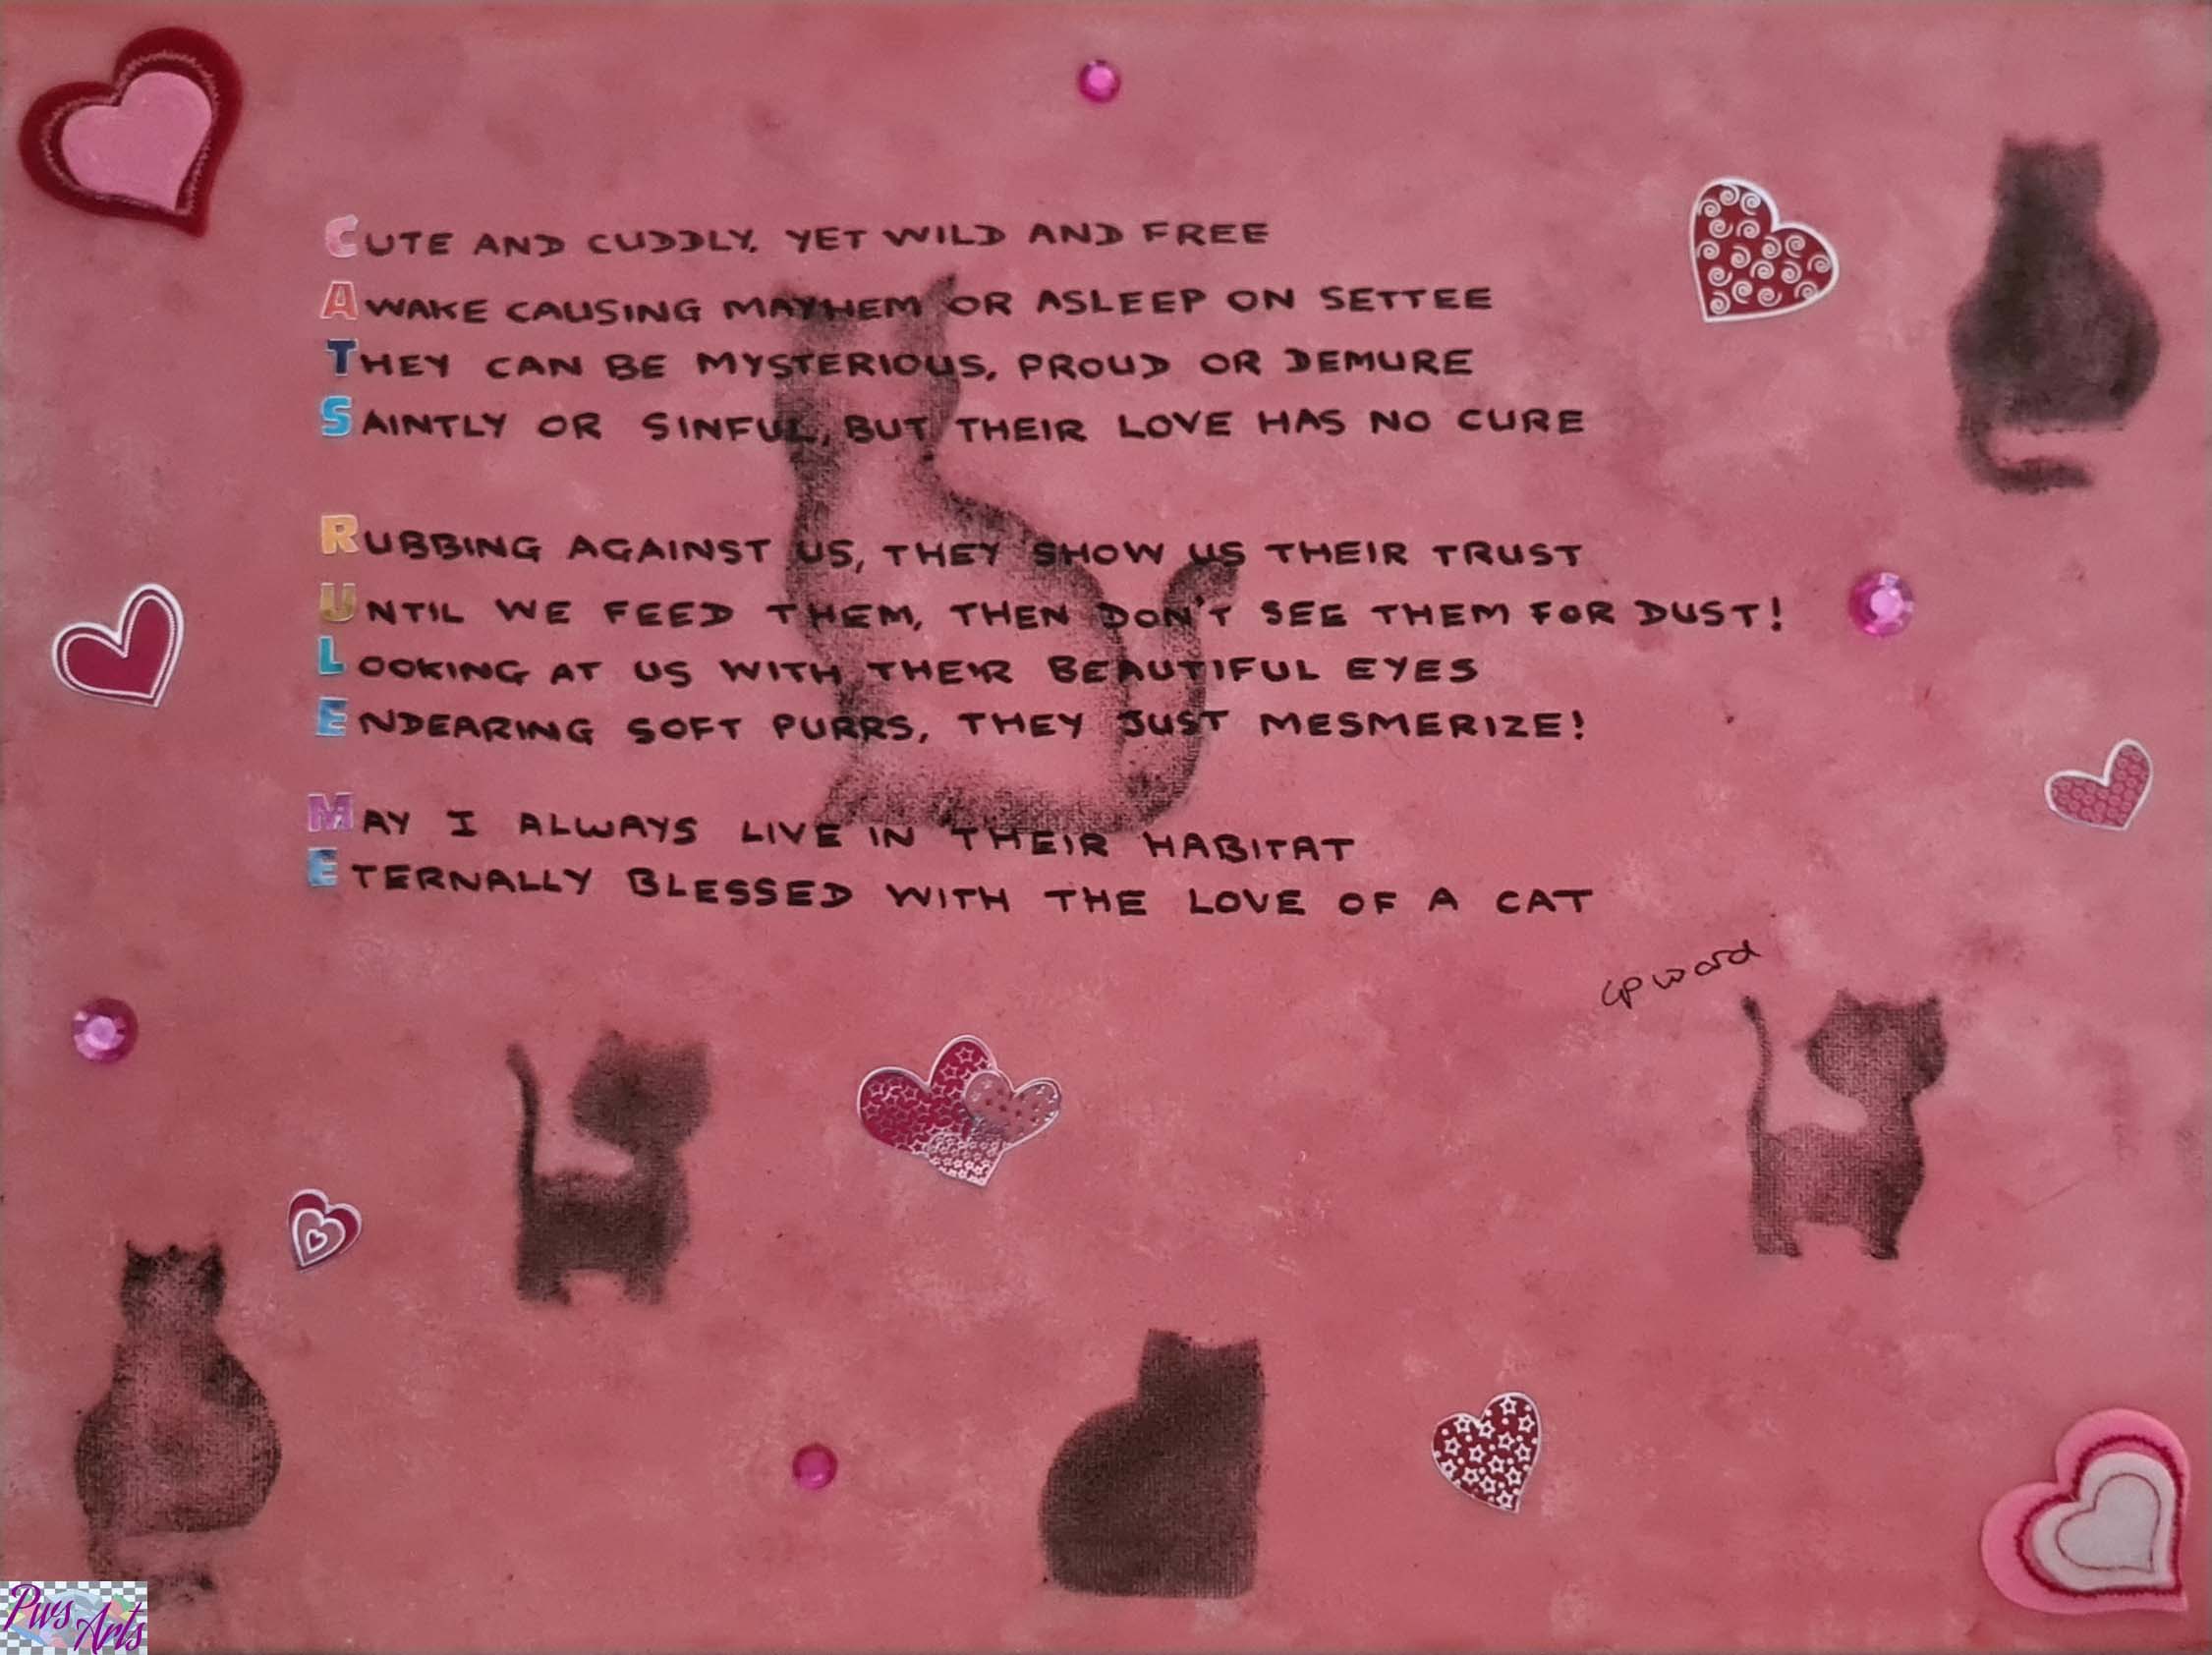 CUTE AND CUDDLY, YET WILD AND FREE
AWAKE CAUSING MAYHEM OR ASLEEP ON SETTEE
THEY CAN BE MYSTERIOUS, PROUD OR DEMURE
SAINTLY OR SINFUL, BUT THEIR LOVE HAS NO CURE
RUBBING AGAINST US, THEY SHOW US THEIR TRUST
UNTIL WE FEED THEM, THEN DON'T SEE THEM FOR DUST!
LOOKING AT US WITH THEIR BEAUTIFUL EYES
ENDEARING SOFT PURRS, THEY JUST MESMERIZE!
MAY I ALWAYS LIVE IN THEIR HABITAT
ETERNALLY BLESSED WITH THE LOVE OF A CAT
Pws Arts